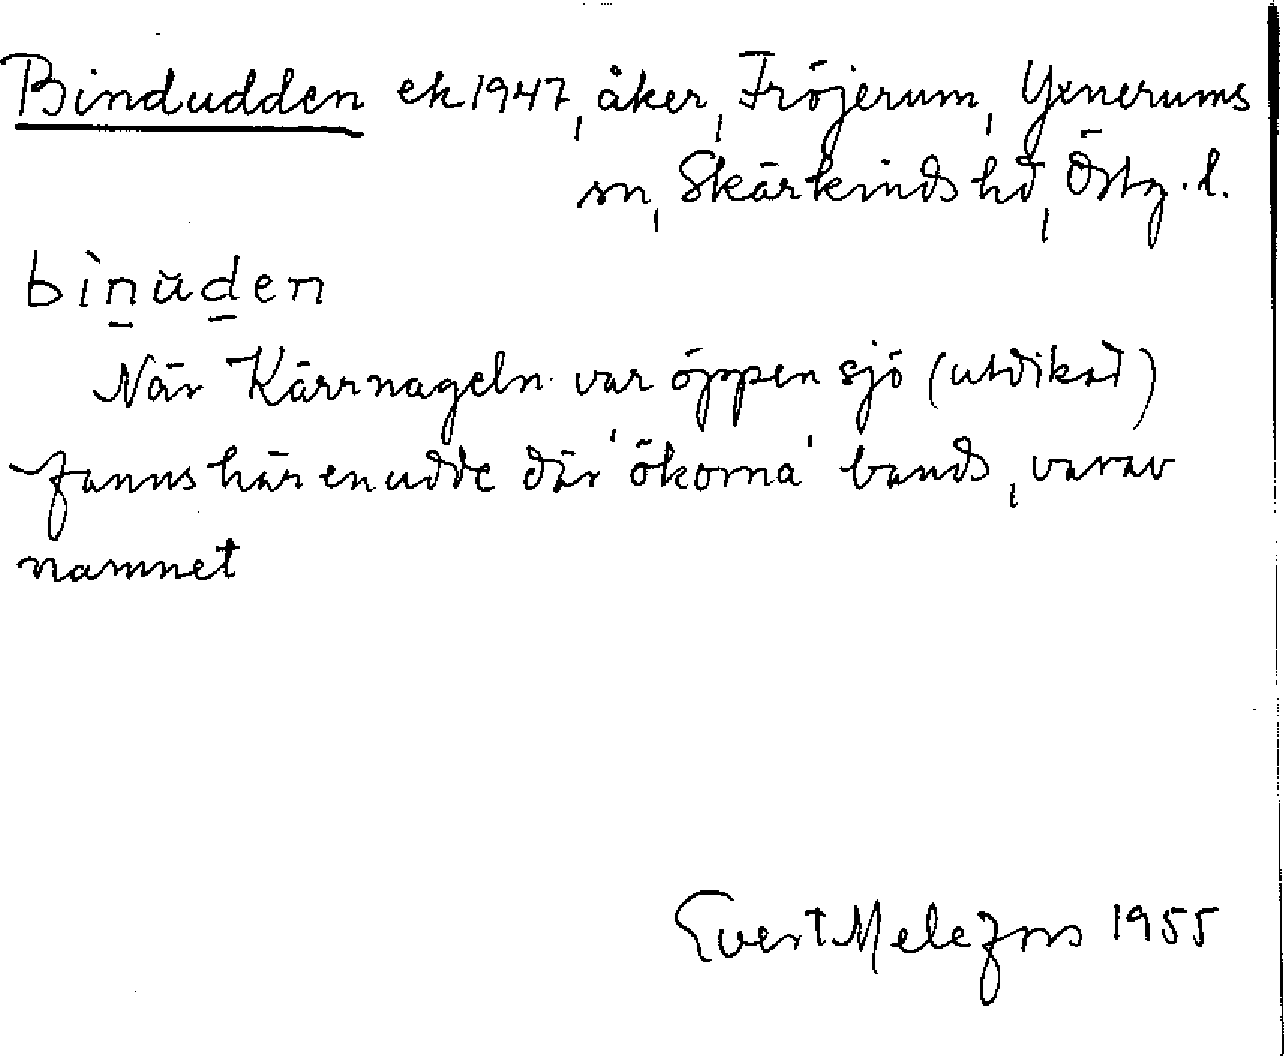 Bindudden ek 1947, åker, Fröjerum, Yxnerums
sn, Skärkinds hd, Östg.l.
bìn̠ŭd̠en
När Kärrnageln var öppen sjö (utdikad)
fanns här en udde där 'ökorna' bands, varav
namnet
Evert Melefors 1955